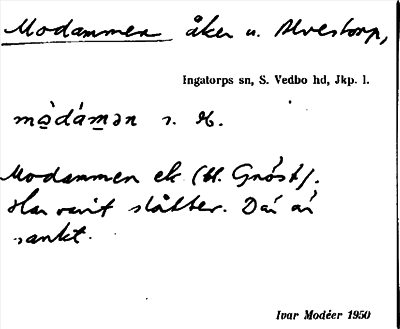 Modammen åker u. Alvestorp,
Ingatorps sn, S. Vedbo hd, Jkp. l.
mo̱dámən s. M.
Modammen ek (H. Gnöst).
Har varit slåtter. Där är
sankt.
Ivar Modéer 1950